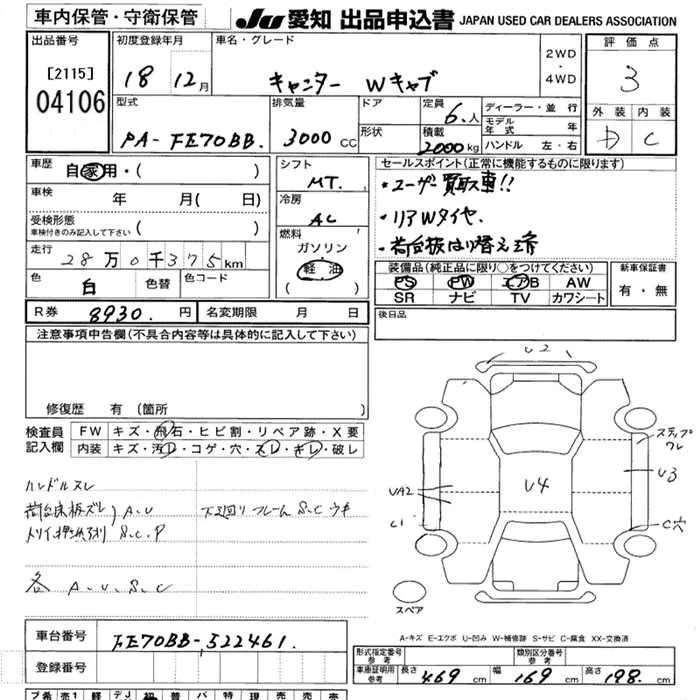 車内保管・守衛保管
JU 愛知 出品申込書 JAPAN USED CAR DEALERS ASSOCIATION
出品番号
[2115]
04106
初度登録年月
18 12月
車名・グレード
キャンター Wキャブ
2WD
・
4WD
評価点
3
外装 内装
D C
型式
PA-FE70BB.
排気量
3000 CC
ドア
形状
定員
6. 人
積載
2000kg
ディーラー・並行
モデル年式 年
ハンドル 左・右
車歴
自家用・( )
車検 年 月( 日)
受検形態
車検付きのみ記入して下さい ( )
走行
28万0千375km
色
白
色替
色コード
シフト
MT.
冷房
AC
燃料
ガソリン
軽油
( )
セールスポイント(正常に機能するものに限ります)
・ユーザー買取車!!
・リアWタイヤ.
・荷台板はり替え済
装備品(純正品に限り○をつけてください)
PS PW エアB AW
SR ナビ TV カワシート
新車保証書
有・無
R券 8930. 円
名変期限 月 日
後日品
注意事項申告欄(不具合内容等は具体的に記入して下さい)
修復歴 有 (箇所 )
検査員記入欄
FW キズ・飛石・ヒビ割・リペア跡・X要
内装 キズ・汚レ・コゲ・穴・スレ・キレ・破レ
ハンドルスレ
荷台床板ズレ A.U
下廻りフレームS.Cウキ
S.C.P
各 A.U.S.C
U2
ステップワレ
U3
U4
UA2
C1
C穴
スペア
A-キズ E-エクボ U-凹み W-補修跡 S-サビ C-腐食 XX-交換済
車台番号 FE70BB-522461.
登録番号
形式指定番号
参考
類別区分番号
参考
車庫証明用
参考
長さ 469 cm 幅 169 cm 高さ 198. cm